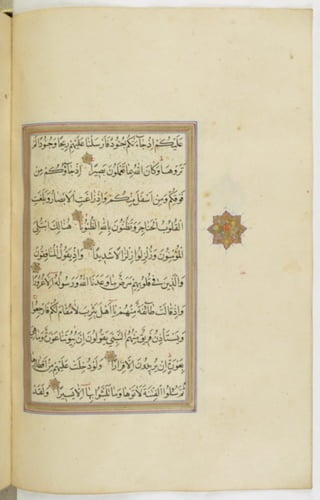 عَلَيْكُمْ اِذْ جَاءَتْكُمْ جُنُودٌ فَاَرْسَلْنَا عَلَيْهِمْ رِيحًا وَجُنُودًا لَمْ
تَرَوْهَا وَكَانَ اللهُ بِمَا تَعْمَلُونَ بَصِيرًا اِذْ جَاؤُكُمْ مِنْ
فَوْقِكُمْ وَمِنْ اَسْفَلَ مِنْكُمْ وَاِذْ زَاغَتِ الْاَبْصَارُ وَبَلَغَتِ
الْقُلُوبُ الْحَنَاجِرَ وَتَظُنُّونَ بِاللهِ الظُّنُونَا هُنَالِكَ ابْتُلِيَ
الْمُؤْمِنُونَ وَزُلْزِلُوا زِلْزَالًا شَدِيدًا وَاِذْ يَقُولُ الْمُنَافِقُونَ
وَالَّذِينَ فِي قُلُوبِهِمْ مَرَضٌ مَا وَعَدَنَا اللهُ وَرَسُولُهُ اِلَّا غُرُورًا
وَاِذْ قَالَتْ طَائِفَةٌ مِنْهُمْ يَا اَهْلَ يَثْرِبَ لَا مُقَامَ لَكُمْ فَارْجِعُوا
وَيَسْتَأْذِنُ فَرِيقٌ مِنْهُمُ النَّبِيَّ يَقُولُونَ اِنَّ بُيُوتَنَا عَوْرَةٌ وَمَا هِيَ
بِعَوْرَةٍ اِنْ يُرِيدُونَ اِلَّا فِرَارًا وَلَوْ دُخِلَتْ عَلَيْهِمْ مِنْ اَقْطَارِهَا
ثُمَّ سُئِلُوا الْفِتْنَةَ لَاٰتَوْهَا وَمَا تَلَبَّثُوا بِهَا اِلَّا يَسِيرًا وَلَقَدْ